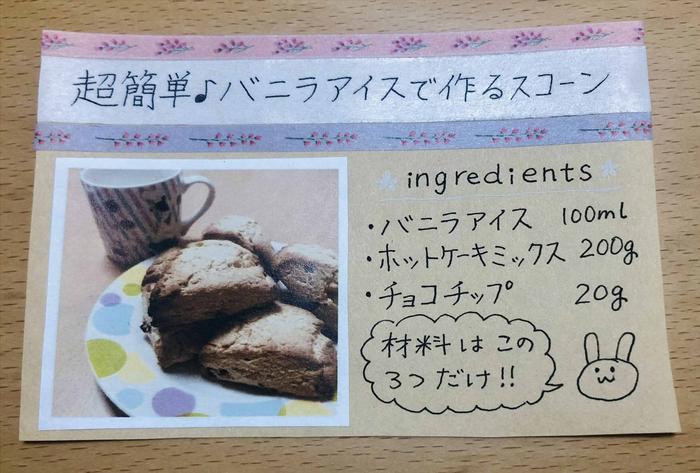 超簡単♪バニラアイスで作るスコーン
ingredients
・バニラアイス 100ml
・ホットケーキミックス 200g
・チョコチップ 20g
材料はこの
3つだけ!!